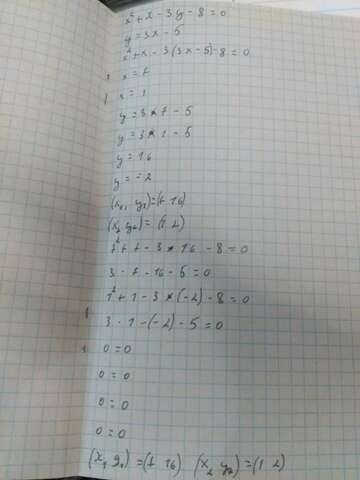 x² + x - 3y - 8 = 0
y = 3x - 5
x² + x - 3(3x - 5) - 8 = 0
x = 7
x = 1
y = 3 * 7 - 5
y = 3 * 1 - 5
y = 16
y = -2
(x₁, y₁) = (7 16)
(x₂ y₂) = (1 2)
7² + 7 - 3 * 16 - 8 = 0
3 · 7 - 16 - 5 = 0
1² + 1 - 3 * (-2) - 8 = 0
3 · 1 - (-2) - 5 = 0
0 = 0
0 = 0
0 = 0
0 = 0
(x₁ y₁) = (7 16) (x₂ y₂) = (1 2)